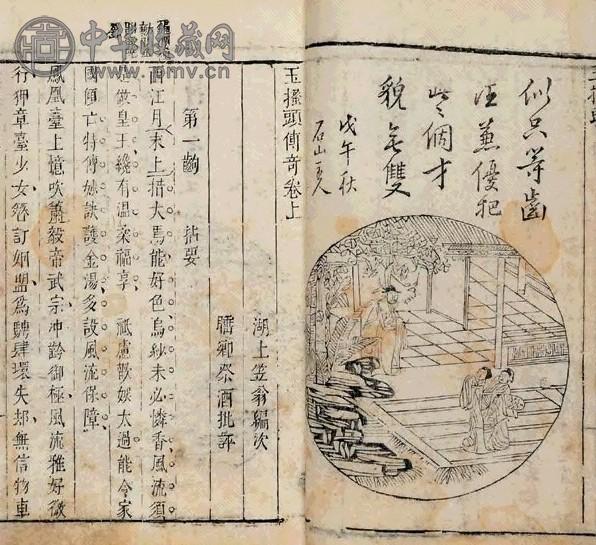 玉搔頭
兼優
個才
貌無雙
戊午秋
石山主人
玉搔頭傳奇卷上
湖上笠翁編次
睡鄉祭酒批評
第一齣　拈要
西江月末上措大焉能好色烏紗未必憐香風流須
是做皇王纔有溫柔福享　祗慮歡娛太過能令家
國傾亡特傳妙訣護金湯多設風流保障
鳳凰臺上憶吹簫毅帝武宗沖齡御極風流雅好微
行狎章臺少女簪訂姻盟爲騁肆環失却無信物車
中华收藏网